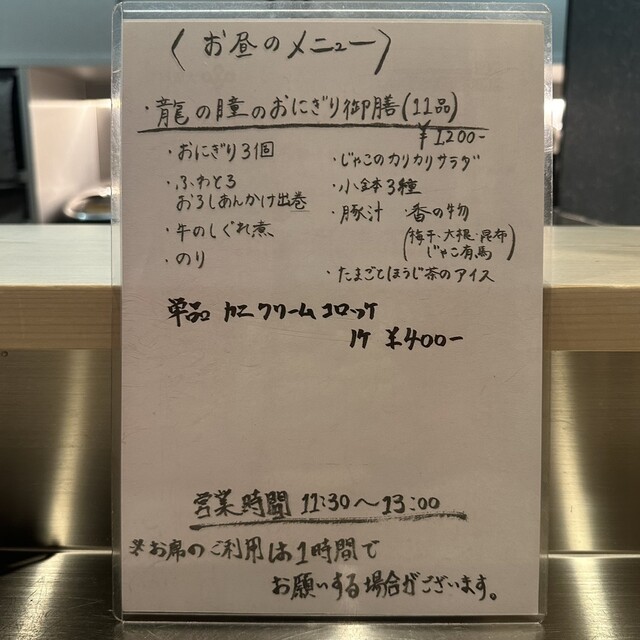 〈お昼のメニュー〉
・龍の瞳のおにぎり御膳(11品)
¥1,200-
・おにぎり3個
・ふわとろ
おろしあんかけ出巻
・牛のしぐれ煮
・のり
・じゃこのカリカリサラダ
・小鉢3種
・豚汁 ・香の物
(梅干・大根・昆布
じゃこ有馬)
・たまごとほうじ茶のアイス
単品 カニクリームコロッケ
1ケ ¥400-
営業時間 11:30〜13:00
※お席のご利用は1時間で
お願いする場合がございます。